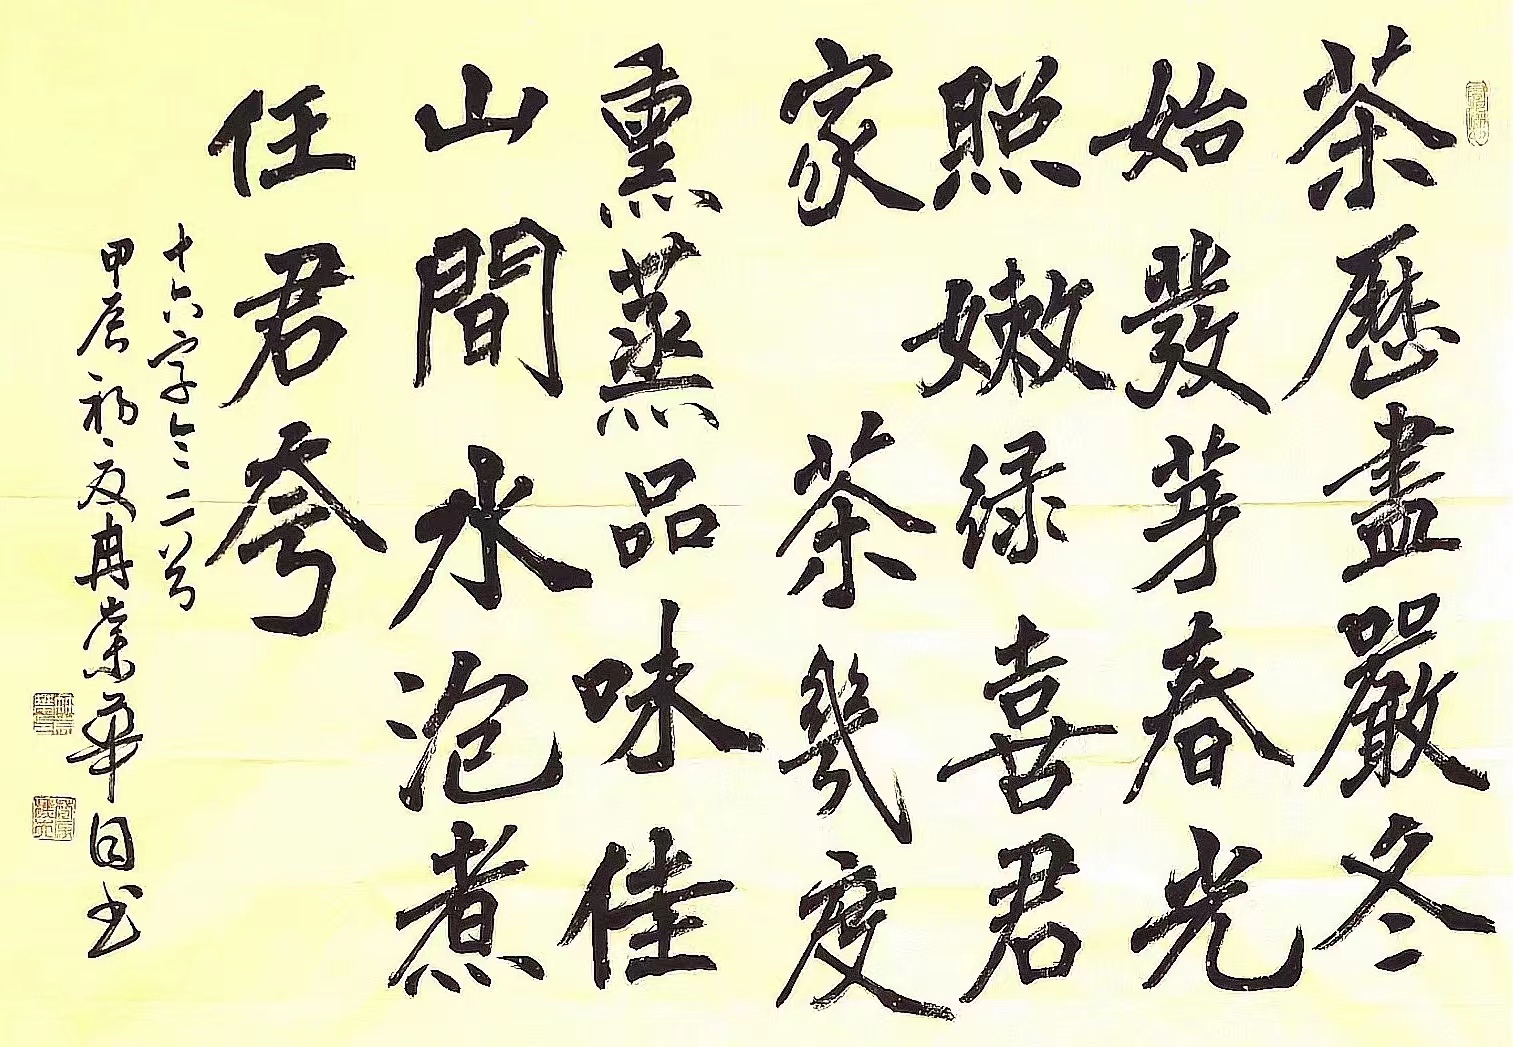 茶歷盡嚴冬
始發芽春光
照嫩綠喜君
家 茶幾度
熏蒸品味佳
山間水泡煮
任君夸
十六字令二首
甲辰初夏冉崇華自书